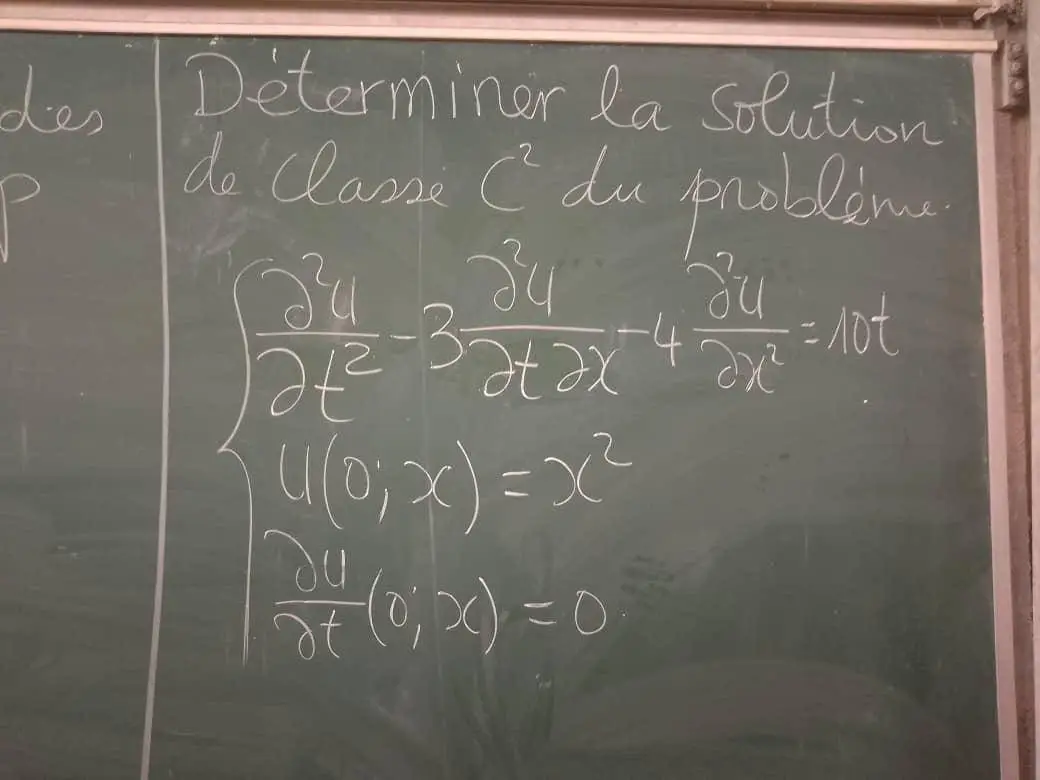 dies
p
Déterminer la solution
de classe C² du problème.
∂²u/∂t² - 3 ∂²u/∂t∂x - 4 ∂²u/∂x² = 10t
u(0; x) = x²
∂u/∂t (0; x) = 0.